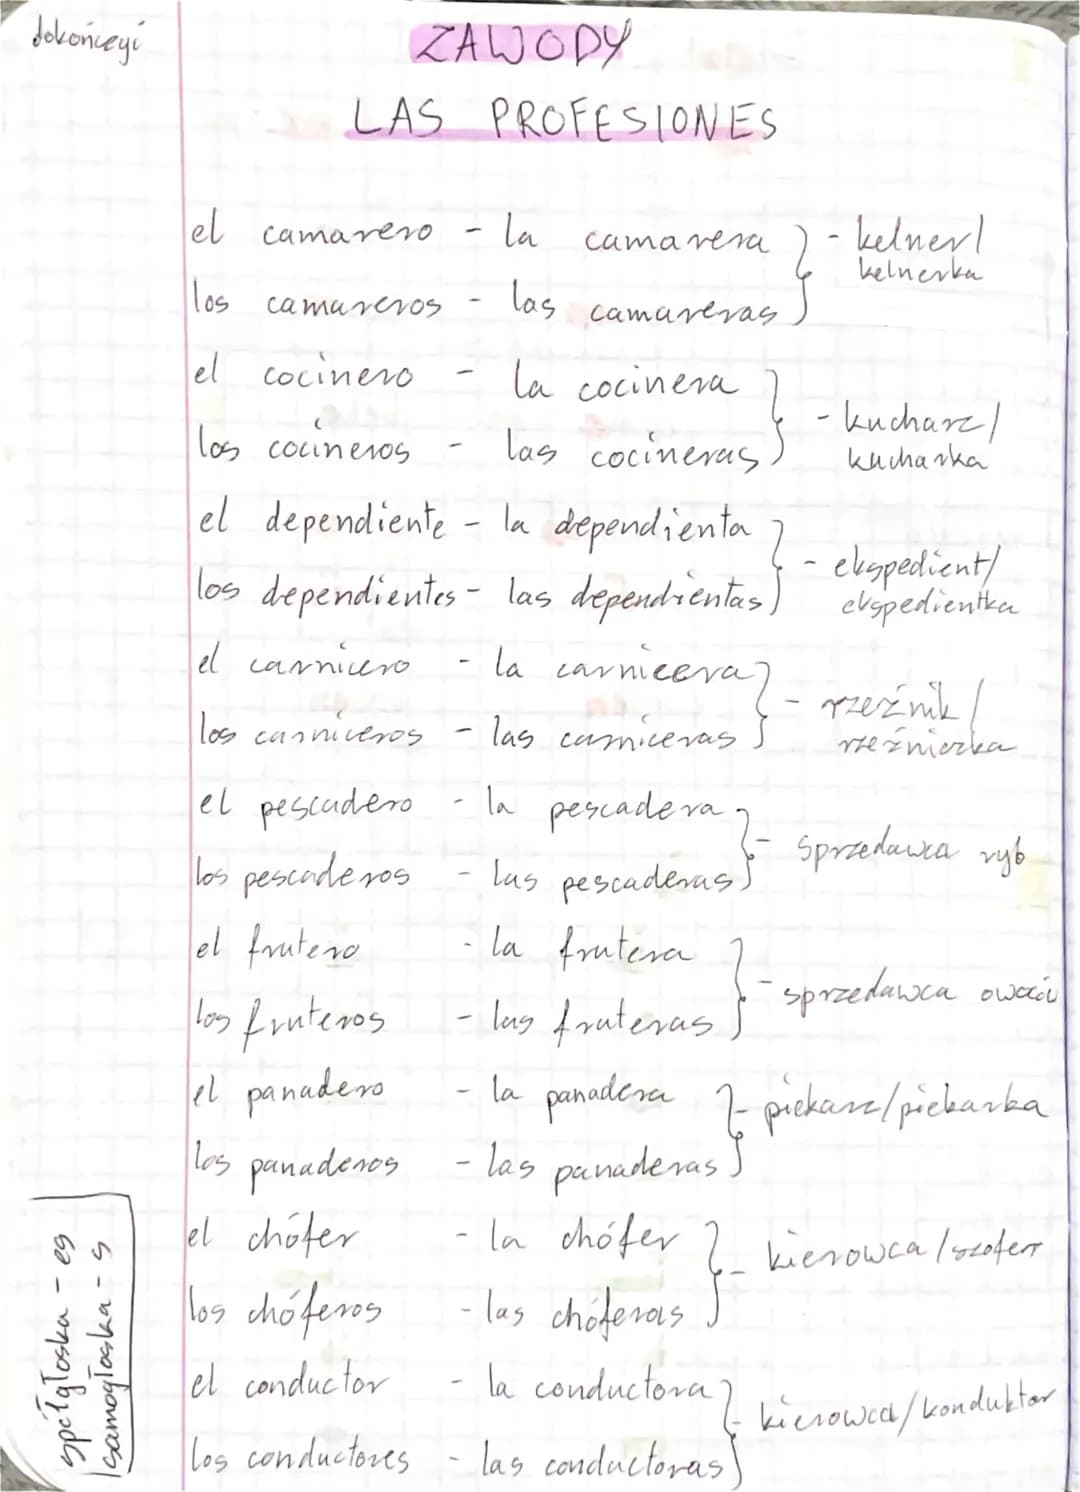 dokończyć
ZAWODY
LAS PROFESIONES
el camarero - la camarera } - kelner/
kelnerka
los camareros - las camareras
el cocinero - la cocinera } - kucharz/
los cocineros - las cocineras kucharka
el dependiente - la dependienta } - ekspedient/
los dependientes - las dependientas ekspedientka
el carnicero - la carnicera } - rzeźnik/
los carniceros - las carniceras rzeźniczka
el pescadero - la pescadera } - sprzedawca ryb
los pescaderos - las pescaderas
el frutero - la frutera } - sprzedawca owoców
los fruteros - las fruteras
el panadero - la panadera } - piekarz/piekarka
los panaderos - las panaderas
el chófer - la chófer } - kierowca/szofer
los chóferos - las chóferas
el conductor - la conductora } - kierowca/konduktor
los conductores - las conductoras
spółgłoska - es
samogłoska - s